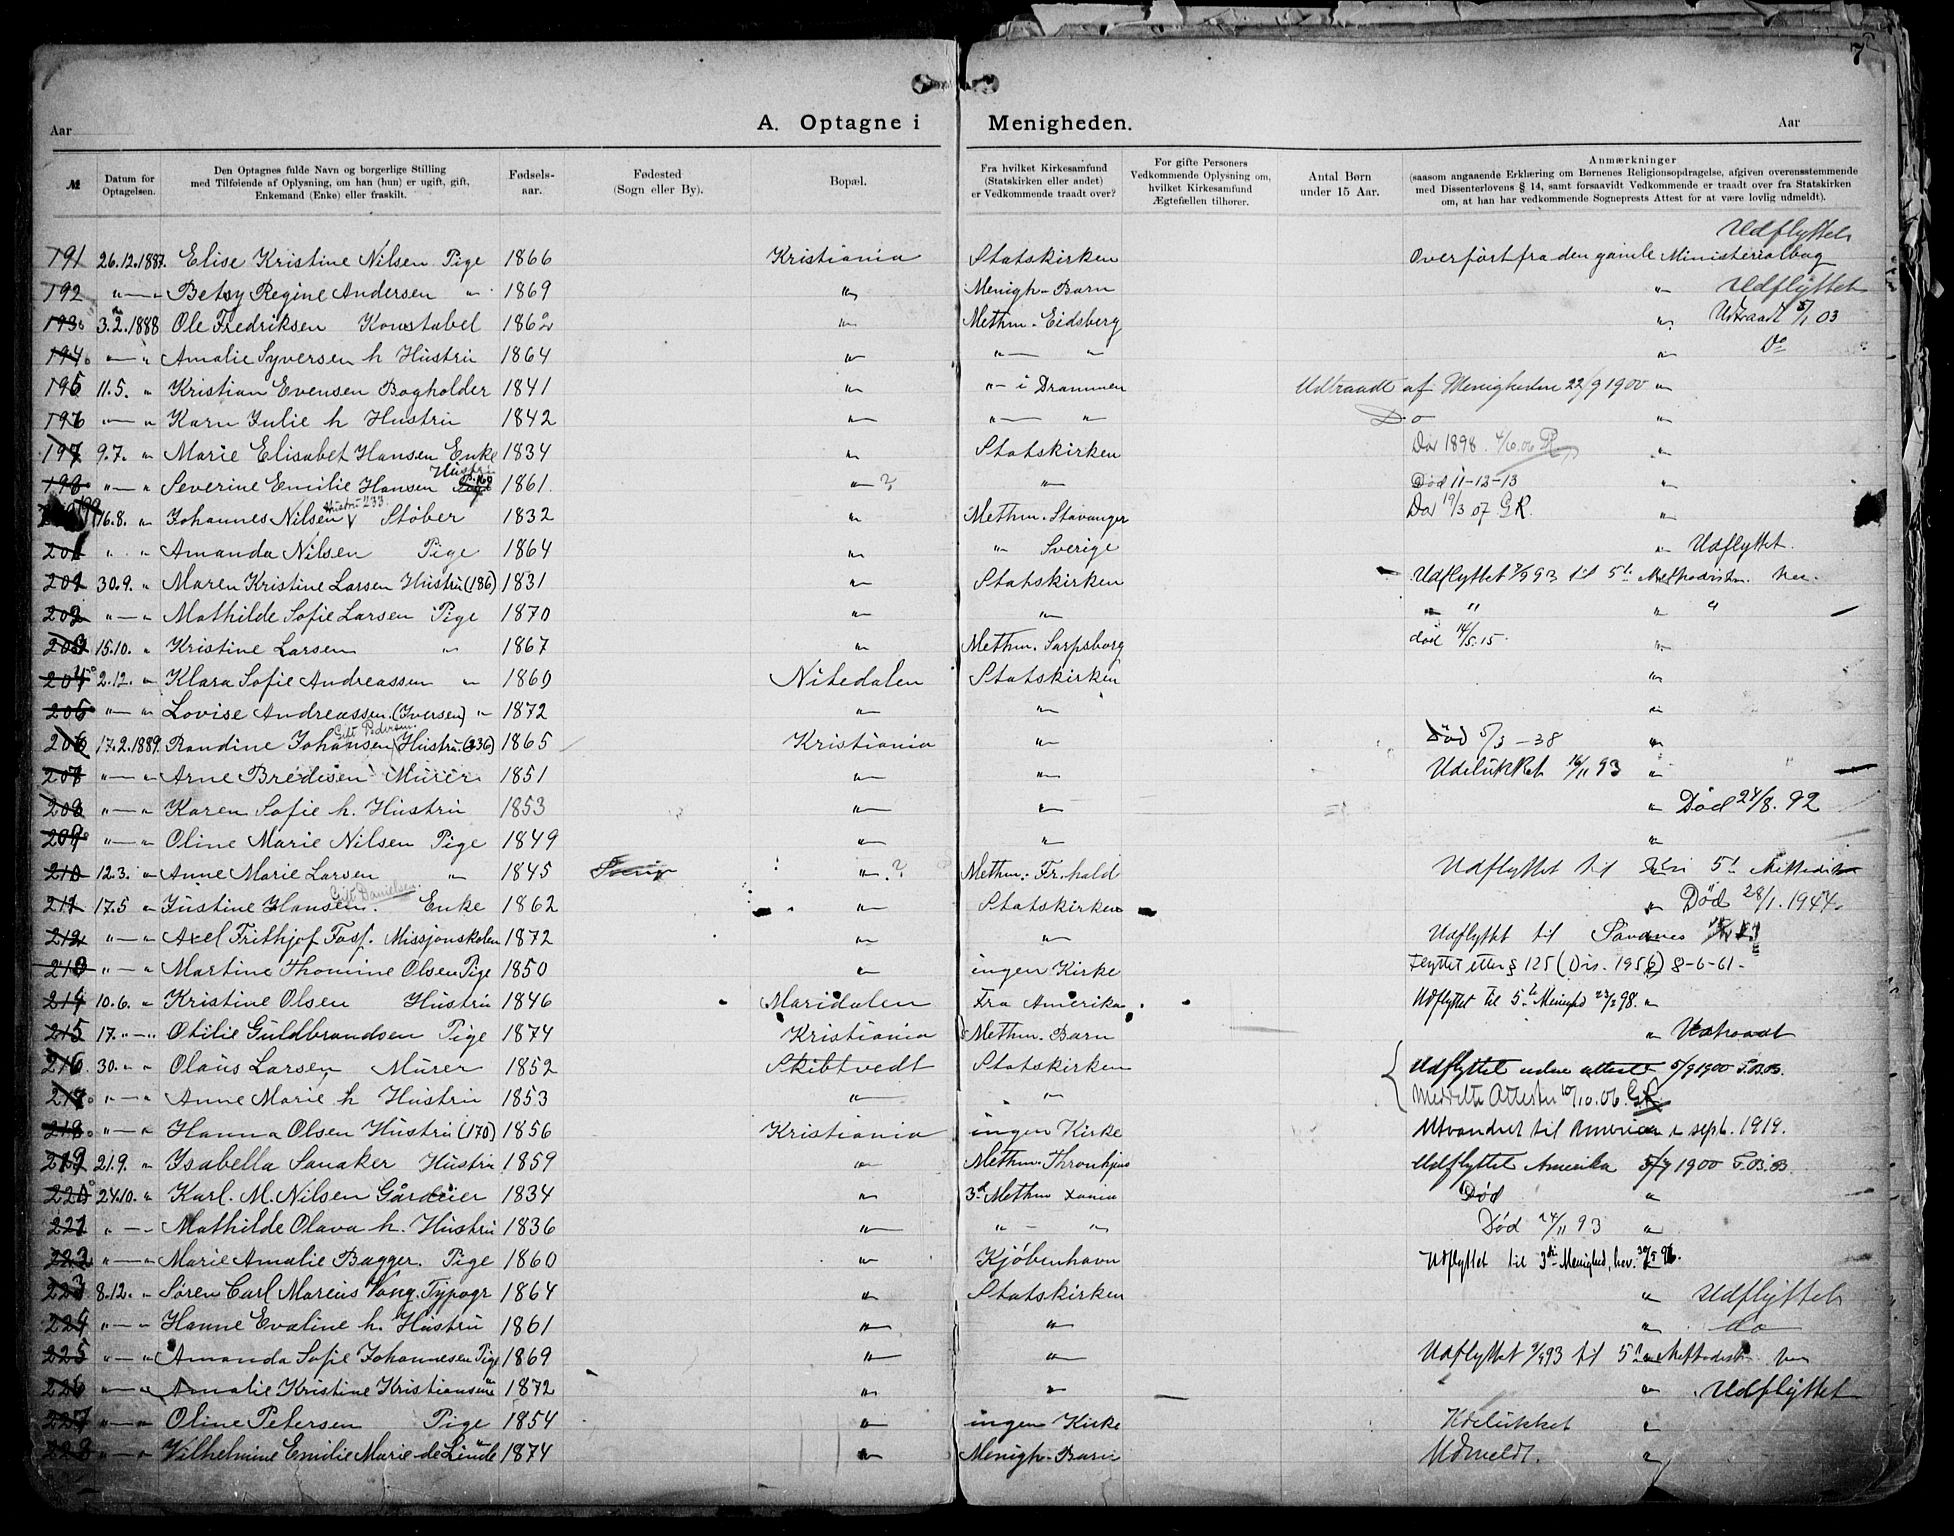 7
A. Optagne i Menigheden.
Aar
Aar
№
Datum for Optagelsen.
Den Optagnes fulde Navn og borgerlige Stilling
med Tilføiende af Oplysning, om han (hun) er ugift, gift,
Enkemand (Enke) eller fraskilt.
Fødsels-
aar.
Fødested
(Sogn eller By).
Bopæl.
Fra hvilket Kirkesamfund
(Statskirken eller andet)
er Vedkommende traadt over?
For gifte Personers
Vedkommende Oplysning om,
hvilket Kirkesamfund
Ægtefællen tilhører.
Antal Børn
under 15 Aar.
Anmærkninger
(saasom angaaende Erklæring om Børnenes Religionsopdragelse, afgiven overensstemmende
med Dissenterlovens § 14, samt forsaavidt Vedkommende er traadt over fra Statskirken
om, at han har vedkommende Sogneprests Attest for at være lovlig udmeldt).
Udflyttet
191 26.12.1887. Elise Kristine Nilsen Pige 1866 Kristiania Statskirken Overført fra den gamle Ministerialbog
192 " — " Betsy Regine Andersen " 1869 " Menigh. Barn " Udflyttet
193 3.2.1888 Ole Fredriksen Konstabel 1862 " Methm. Eidsberg " Udtraadt 5/1 03
194 " — " Amalie Syversen h Hustru 1864 " " — " " Do
195 11.5. " Kristian Evensen Bogholder 1841 " " i Drammen Udtraadt af Menigheden 22/9 1900 "
196 " — " Karn Julie h Hustru 1842 " " — " Do "
197 9.7. " Marie Elisabet Hansen Enke 1834 " Statskirken Dør 1898. 4/6.06 "
Hustru
198 " — " Severine Emilie Hansen Pige 1861 " ? " Død 11-12-13 "
Hustru 233
199 16.8. " Johannes Nilsen Støber 1832 " Methm. Stavanger Dør 19/3 07 GR. "
200 " " Amanda Nilsen Pige 1864 " " Sverige " Udflyttet.
201 30.9. " Maren Kristine Larsen Hustru (186) 1831 " Statskirken Udflyttet 7/9 93 til 5te Methodistm. her.
202 " — " Mathilde Sofie Larsen Pige 1870 " " " " " "
203 15.10. " Kristine Larsen " 1867 " Methm. Sarpsborg død 14/5.15. "
204 2.12. " Klara Sofie Andreassen " 1860 Nitedalen Statskirken "
205 " — " Lovise Andreassen (Iversen) " 1872 " " "
Gift Pedersen.
206 17.2.1889. Randine Johansen Hustru. (236) 1865 Kristiania " Død 5/3 - 38 "
207 " — " Arne Bredesen Murer 1851 " " Udelukket 16/11 93 "
208 " — " Karen Sofie h. Hustru 1853 " " " Død 24/8. 92
209 " — " Oline Marie Nilsen Pige 1849 " " "
210 12.3. " Anne Marie Larsen " 1845 Sverige " ? Methm. Fr.hald Udflyttet til 5te Methodistm
Gift Danielsen.
211 17.5 " Justine Hansen. Enke 1862 " Statskirken " Død 28/1. 1944.
212 " — " Axel Frithjof Tosf. Missjonskolen 1872 " " Udflyttet til Sandnes
213 " — " Martine Thomine Olsen Pige 1850 " ingen Kirke Flyttet etter § 125 (Dis. 1956) 8-6-61-
214 10.6. " Kristine Olsen Hustru 1846 Maridalen Fra Amerika Udflyttet til 5te Menighed 23/3 98. "
215 17. " — " Otilie Guldbrandsen Pige 1874 Kristiania Methm. Barn " Udtraadt
216 30. " " Olaus Larsen Murer 1852 Skibtvedt Statskirken Udflyttet uden attest 5/9 1900 T.B.B.
217 " — " Anne Marie h Hustru 1853 " " Meddelte Attester 10/10.06. G.R.
218 " — " Hanna Olsen Hustru (170) 1856 Kristiania ingen Kirke Utvandret til Amerika i sept. 1919.
219 21.9. " Isabella Sanaker Hustru 1859 " Methm. Thronhjem Udflyttet Amerika 5/9 1900 T.B.B.
220 24.10. " Karl. M. Nilsen Gårdeier 1834 " 3d Methm Xania Død "
221 " — " Mathilde Olava h. Hustru 1836 " " — " Død 24/11 93 "
222 " — " Marie Amalie Bagger. Pige 1860 " Kjøbenhavn Udflyttet til 3die Menighed, her. 30/5 96.
223 8.12. " Søren Carl Marius Vang. Typogr 1864 " Statskirken " Udflyttet
224 " — " Hanne Evaline h. Hustru 1861 " " " do
225 " — " Amanda Sofie Johannesen Pige 1869 " " Udflyttet 9/9 93 til 5te Methodistm her
226 " — " Amalie Kristine Kristiansen 1872 " " " Udflyttet
227 " — " Oline Petersen Pige 1854 " ingen Kirke Udelukket "
228 " — " Vilhelmine Emilie Marie de Linde 1874 " Menigh. Barn Udmeldt. "